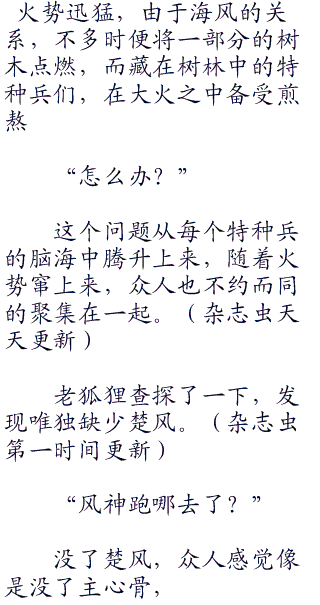 火势迅猛，由于海风的关
系，不多时便将一部分的树
木点燃，而藏在树林中的特
种兵们，在大火之中备受煎
熬
“怎么办？”
这个问题从每个特种兵
的脑海中腾升上来，随着火
势窜上来，众人也不约而同
的聚集在一起。（杂志虫天
天更新）
老狐狸查探了一下，发
现唯独缺少楚风。（杂志虫
第一时间更新）
“风神跑哪去了？”
没了楚风，众人感觉像
是没了主心骨，